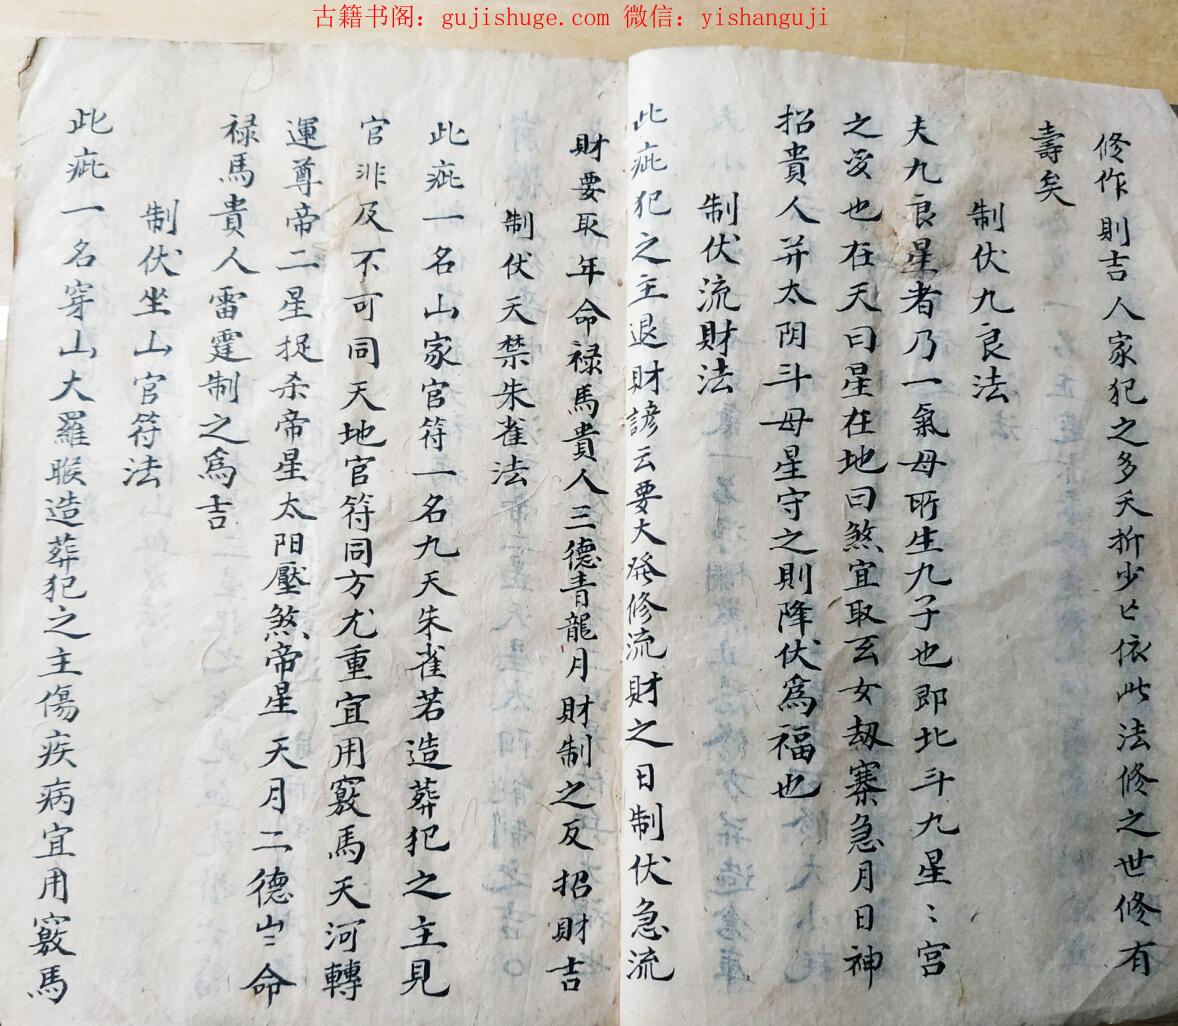 古籍书阁：gujishuge.com 微信：yishanguji
修作則吉人家犯之多夭折少亡依此法修之世修有
壽矣
制伏九良法
夫九良星者乃一氣母所生九子也即北斗九星〻宮
之受也在天曰星在地曰煞宜取玄女劫寨急月日神
招貴人并太阴斗母星守之則降伏為福也
制伏流財法
此疵犯之主退財諺云要大發修流財之日制伏急流
財要取年命禄馬貴人三德青龍月財制之反招財吉
制伏天禁朱雀法
此疵一名山家官符一名九天朱雀若造葬犯之主見
官非及不可同天地官符同方尤重宜用竅馬天河轉
運尊帝二星捉杀帝星太阳壓煞帝星天月二德命
禄馬貴人雷霆制之為吉
制伏坐山官符法
此疵一名穿山大羅睺造葬犯之主傷疾病宜用竅馬